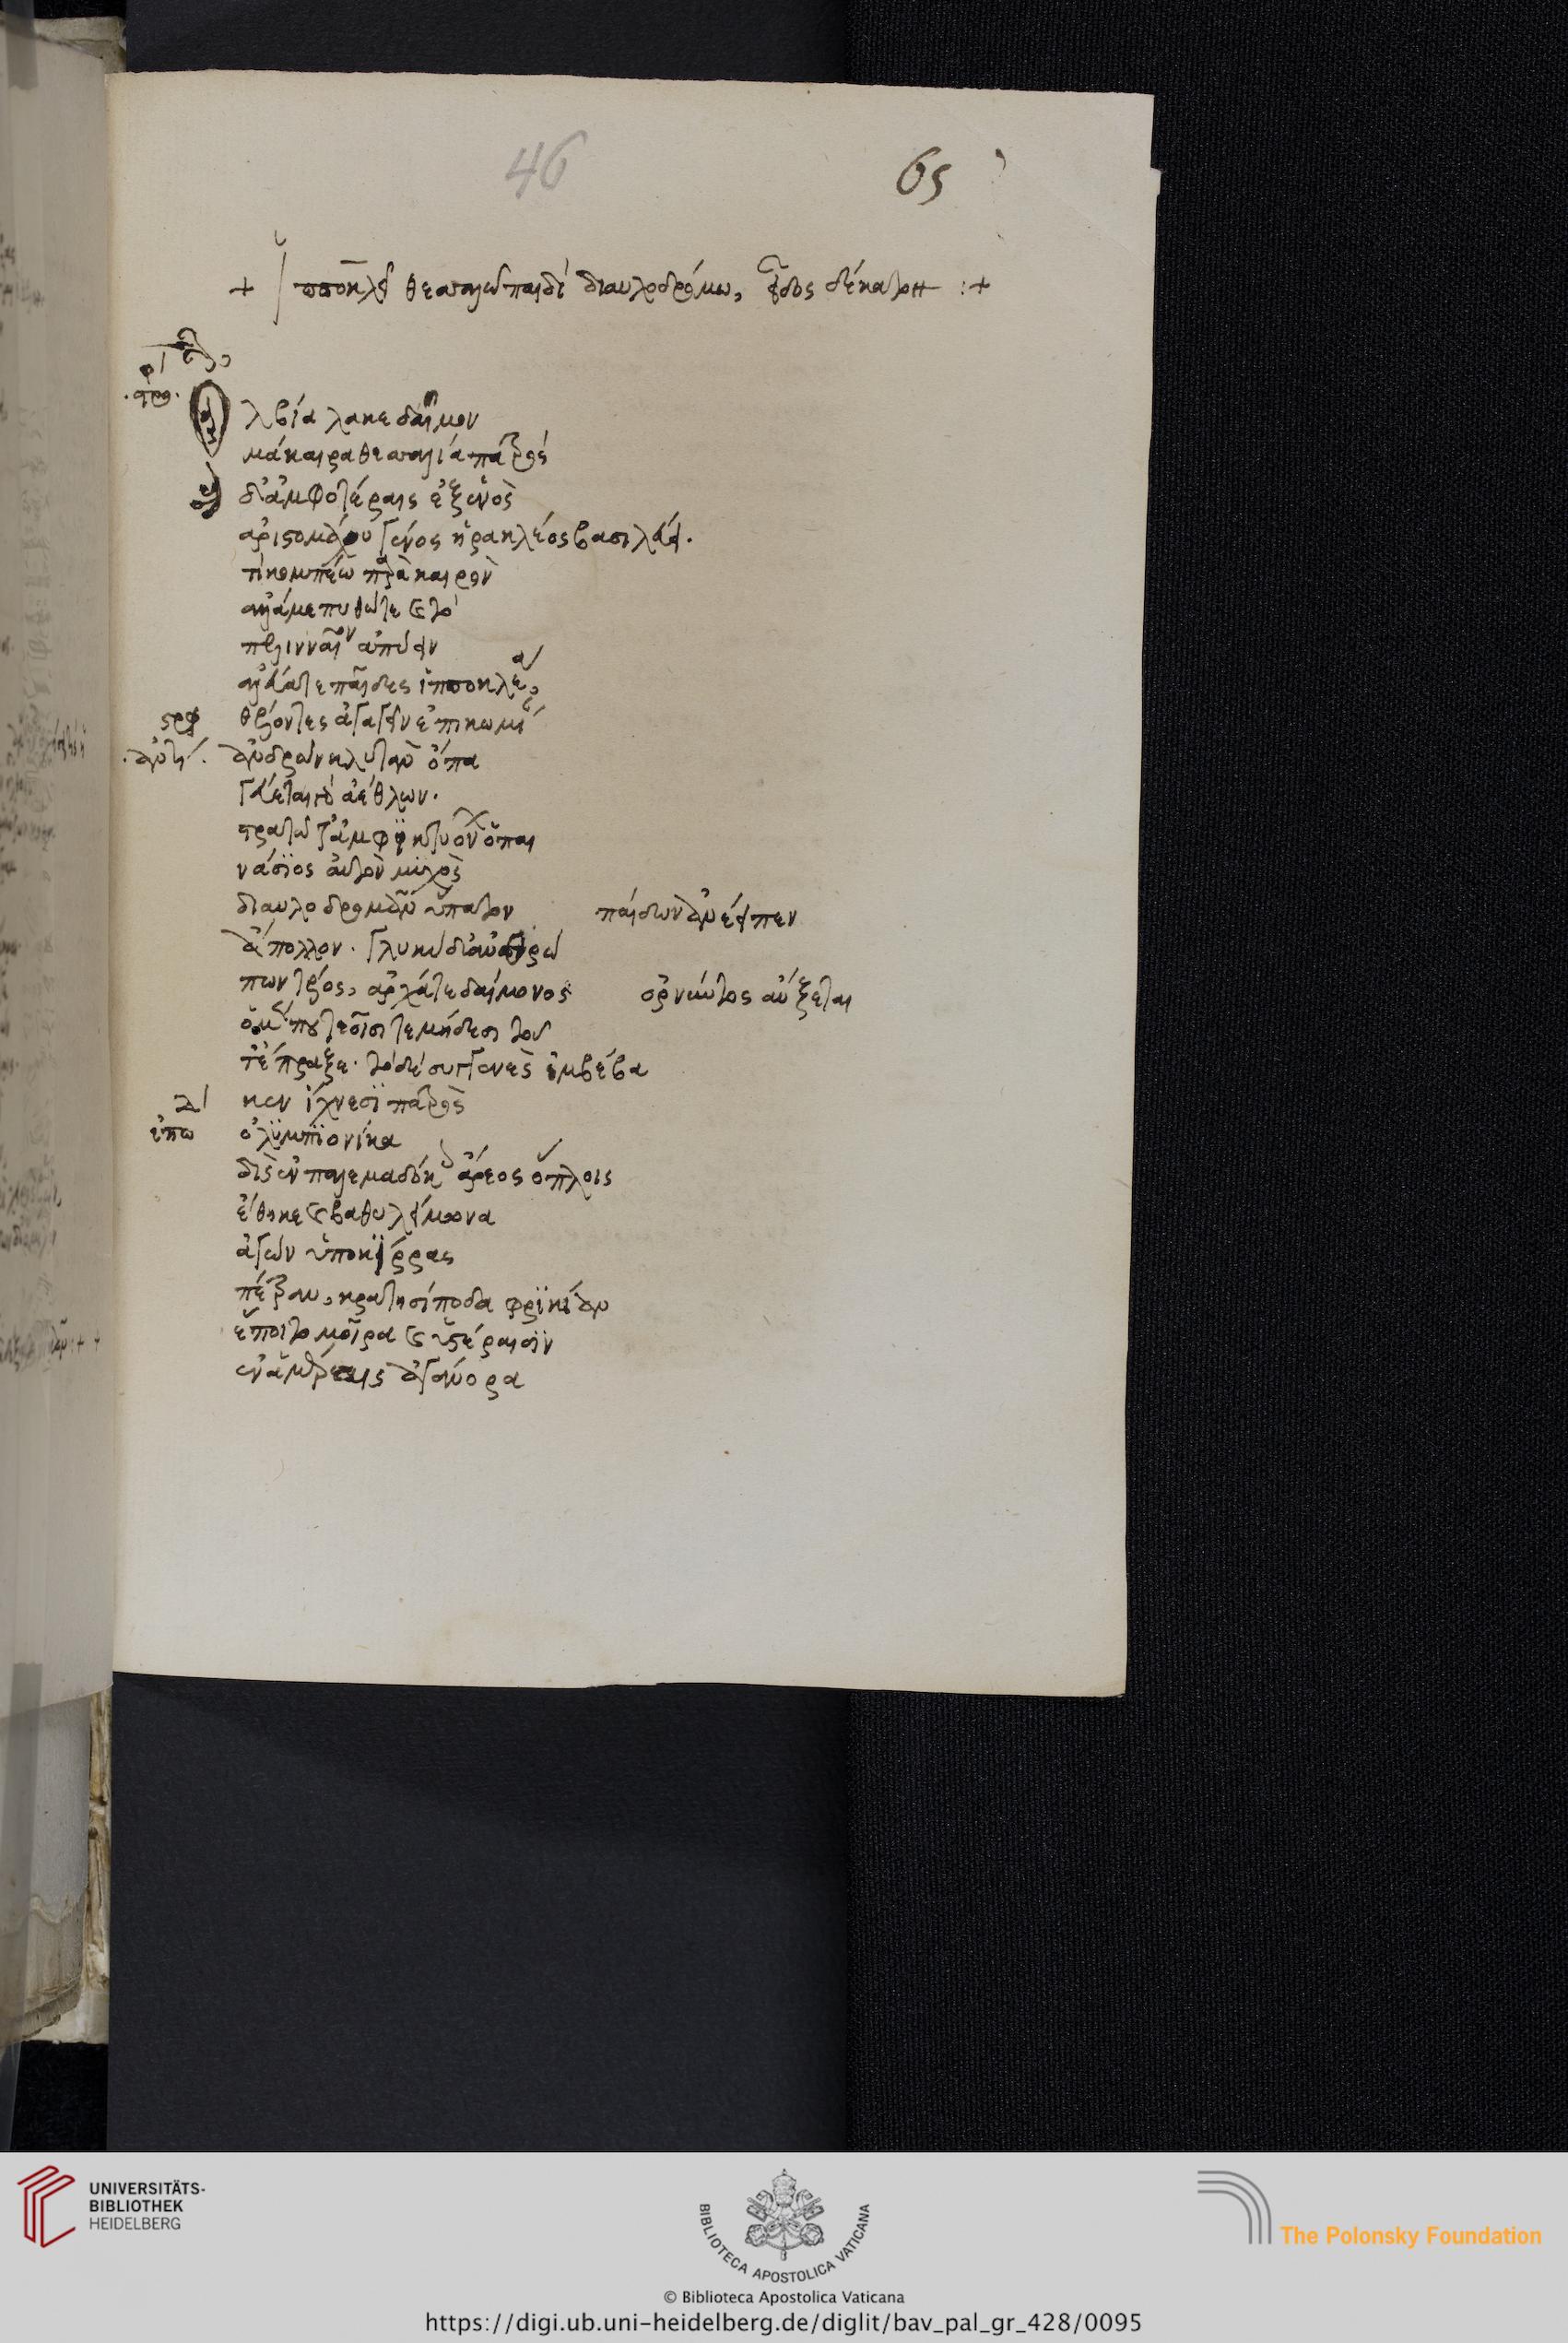 46
65
+ ἱπποκλεῖ θεσσαλῶ παιδὶ διαυλοδρόμω, εἶδος δέκατον :+
στρο.
λβία λακεδαῖμον
μάκαιρα θεσσαλία πατρὸς
δ' ἀμφοτέραις ἐξ ἑνὸς
ἀριστομάχου γένος ἡρακλέος βασιλεύει.
τί κομπέω παρὰ καιρὸν
ἀλλά με πυθώ τε καὶ τὸ
πελινναῖον ἀπύει
ἀλεύα τε παῖδες ἱπποκλέα,
θέλοντες ἀγαγεῖν ἐπικωμίαν
ἀντι. ἀνδρῶν κλυτὰν ὄπα
γεύεται γὰρ ἀέθλων.
στρατῶ τ' ἀμφικτυόνων ὁ παρ
νάσιος αὐτὸν μυχὸς
διαυλοδρομᾶν ὕπατον παίδων ἀνέειπεν
ἄπολλον. γλυκὺ δ' ἀνθρώ
πων τέλος, ἀρχά τε δαίμονος ὀρνύντος αὔξεται
ὁ μέν που τεοῖσί τε μήδεσι τοῦ
τ' ἔπραξε. τὸ δὲ συγγενὲς ἐμβέβα
κεν ἴχνεσι πατρὸς
ἐπω ὀλυμπιονίκα
δὶς ἐν πολεμαδόκοις ἄρεος ὅπλοις
ἔθηκε καὶ βαθυλείμωνα
ἀγὼν ὑπὸ κίρρας
πέτραν, κρατησίποδα φρικίαν
ἕποιτο μοῖρα καὶ ὑστέραισιν
ἐν ἁμέραις ἀγάνορα
UNIVERSITÄTS-
BIBLIOTHEK
HEIDELBERG
BIBLIOTECA APOSTOLICA VATICANA
The Polonsky Foundation
© Biblioteca Apostolica Vaticana
https://digi.ub.uni-heidelberg.de/diglit/bav_pal_gr_428/0095